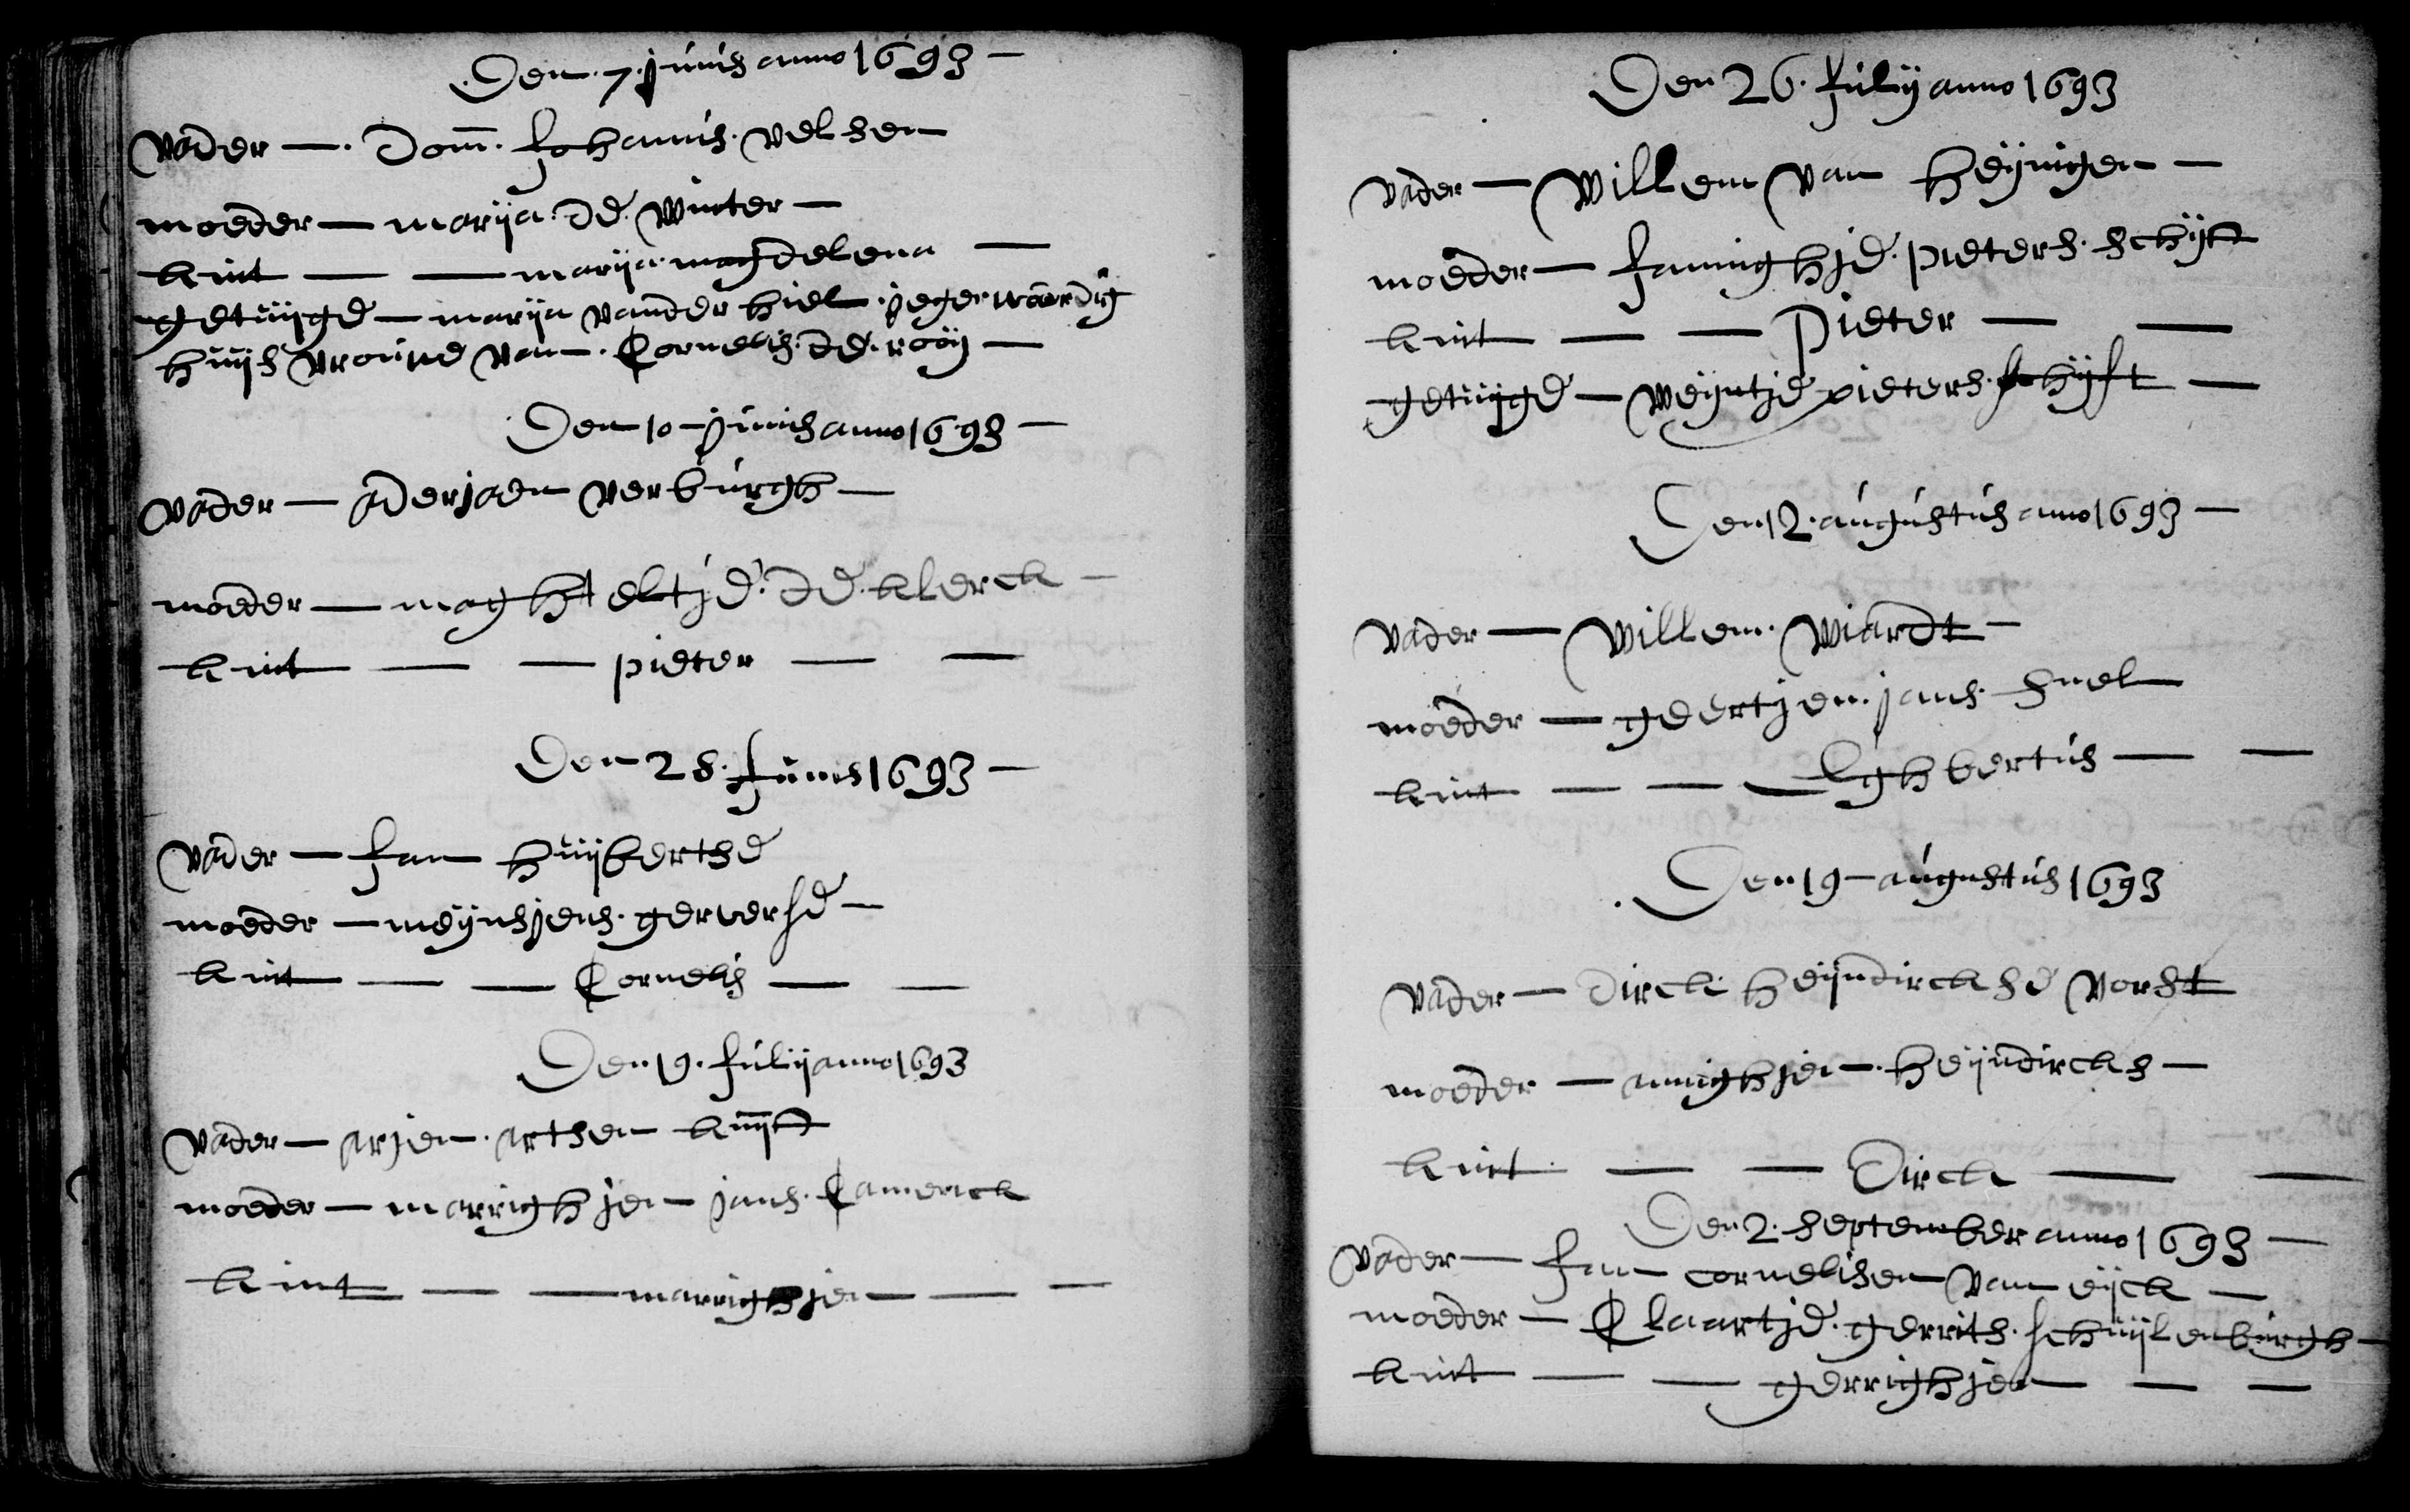 Den 7 junis anno 1693 —
vader — Dom. Johannis velsen
moeder — marija de winter —
kint — — marija magdelena —
getuijge — marija vander hiel jegenwoordig
huijs vrouwe van Cornelis de rooij —
Den 10 junis anno 1693 —
vader — aderjaen verburgh —
moeder — maghteltje de klerck —
kint — — pieter — —
Den 28 Junis 1693 —
vader — Jan huijbertse
moeder — meijnsjens gerverse —
kint — — Cornelis — —
Den 19 Julij anno 1693
vader — arjen artsen kuijt
moeder — marrighjen jans Camerick
kint — — marrighjen — —
Den 26 Julij anno 1693
vader — Willem van heijnigen —
moeder — Jannighje pieters schijft
kint — — Pieter — —
getuijge — Weijntje pieters schijft —
Den 12 augustus anno 1693 —
vader — Willem Wiardt —
moeder — geertjen jans snel
kint — — Eghbertus — —
Den 19 — augustus 1693
vader — Dirck heijndirckse vorst
moeder — annighjen heijndircks —
kint — — Dirck — —
Den 2 september anno 1693 —
vader — Jan cornelisen van eijck —
moeder — Claartje gerrits schuijlenburgh —
kint — — gerrighjen — — —